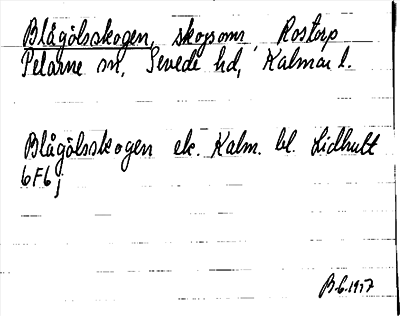 Blågölsskogen, skogsomr, Rostorp
Pelarne sn, Sevede hd, Kalmar l.
Blågölsskogen ek. Kalm. bl. Lidhult
6F6j
B.G. 1957